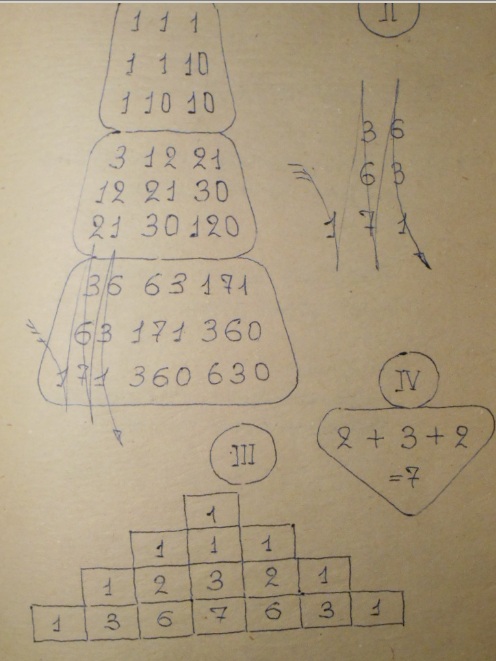 1 1 1
1 1 10
1 10 10
3 12 21
12 21 30
21 30 120
36 63 171
63 171 360
171 360 630
II
3 6
6 3
1 7 1
III
1
1 1 1
1 2 3 2 1
1 3 6 7 6 3 1
IV
2 + 3 + 2
=7